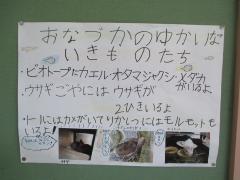 おなづかのゆかいな
いきものたち
・ビオトープにカエルオタマジャクシメダカ
がいるよ
・ウサギごやにはウサギが
2ひきいるよ
・トールにはカメがいてりかしつにはモルモットも
いるよ!